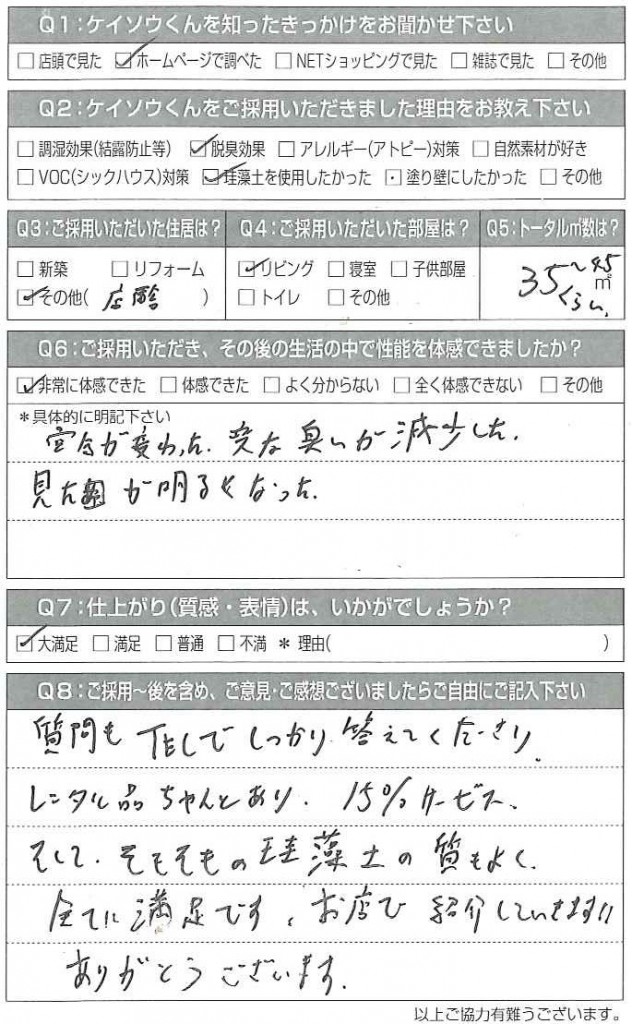 Q1:ケイソウくんを知ったきっかけをお聞かせ下さい
□店頭で見た ☑ホームページで調べた □NETショッピングで見た □雑誌で見た □その他
Q2:ケイソウくんをご採用いただきました理由をお教え下さい
□調湿効果(結露防止等) ☑脱臭効果 □アレルギー(アトピー)対策 □自然素材が好き
□VOC(シックハウス)対策 ☑珪藻土を使用したかった □塗り壁にしたかった □その他
Q3:ご採用いただいた住居は?
□新築 □リフォーム
☑その他( 店舗 )
Q4:ご採用いただいた部屋は?
☑リビング □寝室 □子供部屋
□トイレ □その他
Q5:トータル㎡数は?
35~45㎡
くらい
Q6:ご採用いただき、その後の生活の中で性能を体感できましたか?
☑非常に体感できた □体感できた □よく分からない □全く体感できない □その他
*具体的に明記下さい
空気が変わった。変な臭いが減少した。
見た面が明るくなった。
Q7:仕上がり(質感・表情)は、いかがでしょうか?
☑大満足 □満足 □普通 □不満 *理由( )
Q8:ご採用〜後を含め、ご意見・ご感想ございましたらご自由にご記入下さい
質問も TELで しっかり 答えてくださり、
レンタル品ちゃんとあり、15%サービス、
そして、そもそもの珪藻土の質もよく、
全てに満足です、お店で 紹介していきます!!
ありがとうございます。
以上ご協力有難うございます。